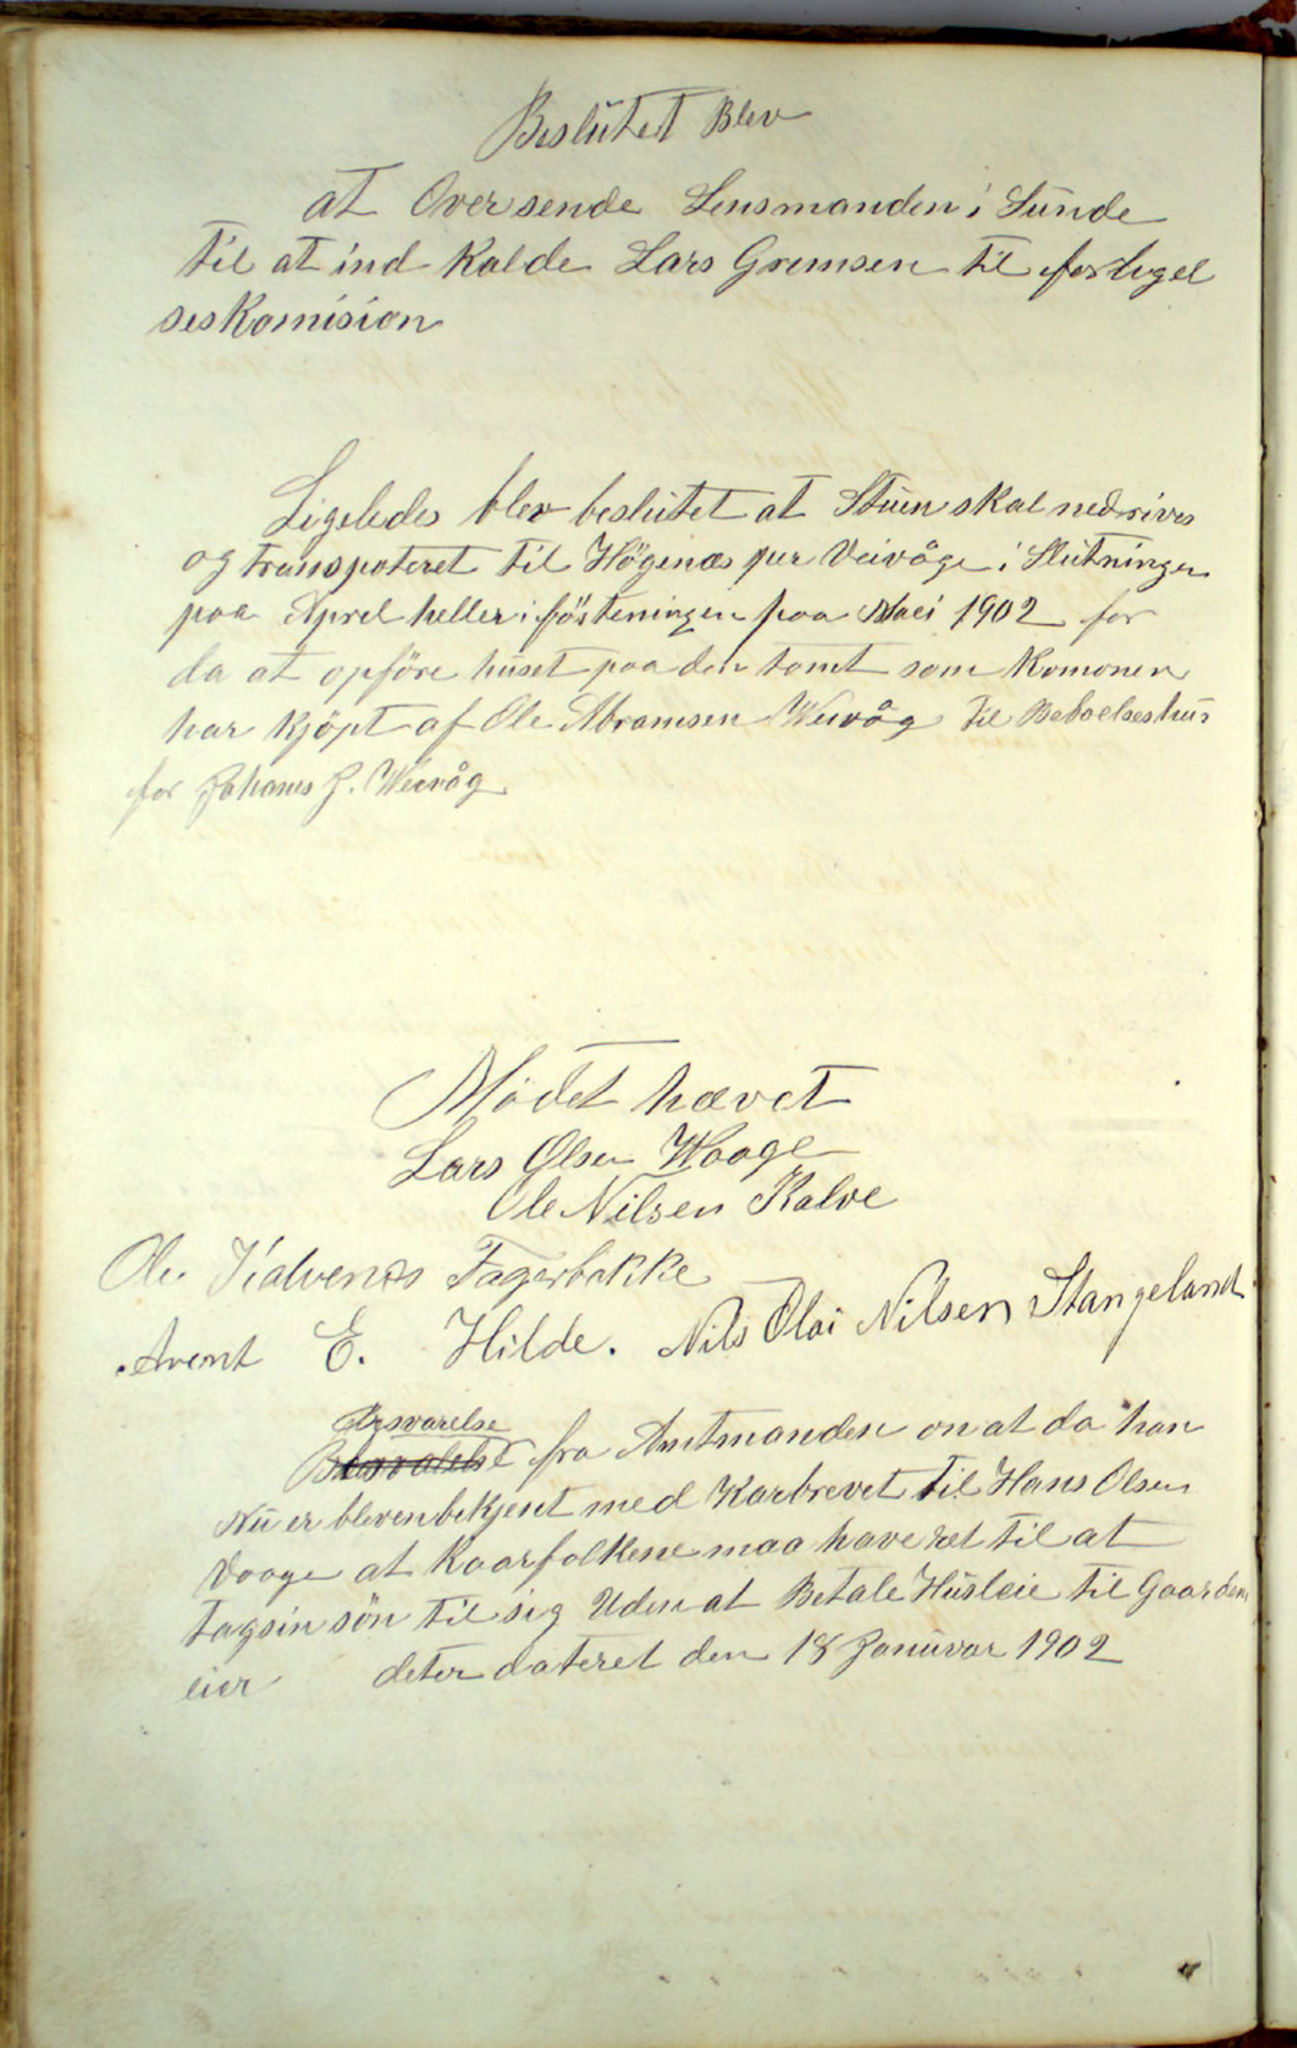 Beslutet Blev
at Oversende Lensmanden i Sunde
til at ind kalde Lars Gremsen til forligel
seskomision
Ligeledes blev beslutet at Stuen skal nedrives
og transpoteret til Högenæs per Veivåge i Slutningen
paa Aprel heller i författeningen paa Maei 1902 for
da at opföre huset paa den tomt som Komonen
har kjöpt af Ole Abramsen Weivåg til Beboelseshus
for Johanes J. Weivåg
Mödet hævet
Lars Olsen Waage
Ole Nilsen Kalve
Ole Kalvenes Fagerbakke
Arent E. Hilde. Nils Olai Nilsen Stangeland
fra Amtmanden om at da han
Nu er bleven bekjent med Karbrevet til Hans Olsen
Vaage at Kaarfolkene maa have ret til at
tagsin sön til sig Uden at Betale Husleie til Gaardens
eier deter dateret den 18 Januvar 1902